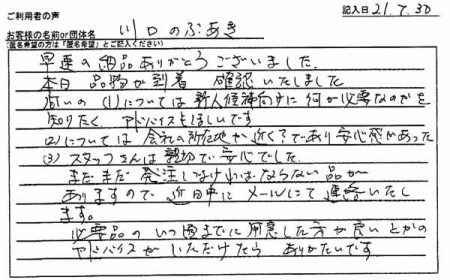 ご利用者の声
記入日 21.7.30
お客様の名前or団体名 川口のぶあき
(匿名希望の方は「匿名希望」とご記入ください)
早速の納品ありがとうございました。
本日 品物が到着 確認いたしました
問いの (1)については新人候補向けに何が必要なのかを
知りたく、アドバイスもほしいです。
(2)については 会社の所在地が近く?であり安心感があった
(3) スタッフさんは親切で安心でした。
まだまだ 発注しなければならない品が
ありますので、近日中にメールにて連絡いたし
ます。
必要品の いつ頃までに用意した方が良いとかの
アドバイスが いただけたら ありがたいです。